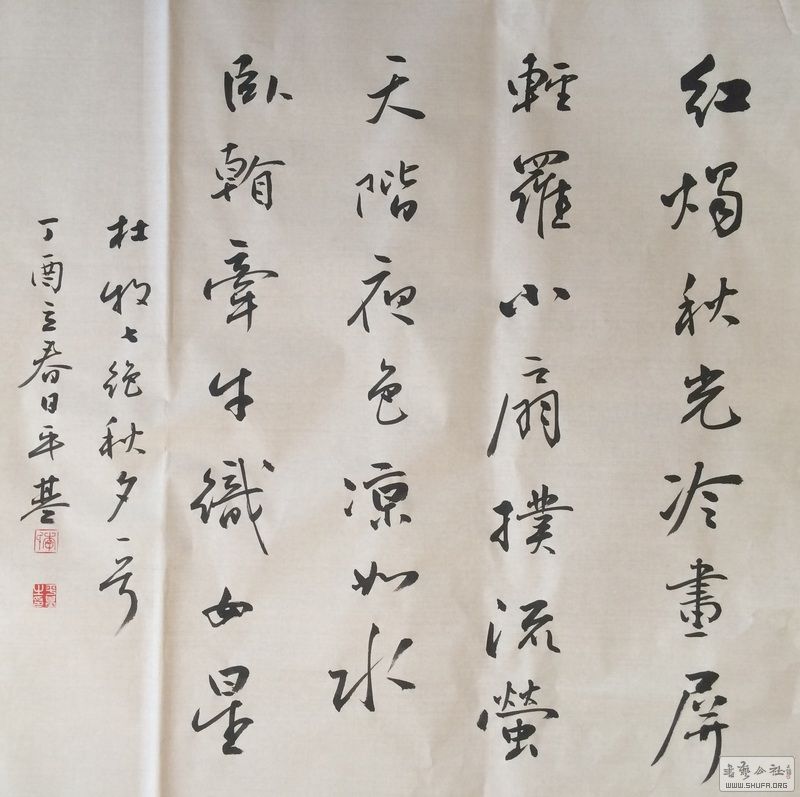 紅燭秋光冷畫屏
輕羅小扇撲流螢
天階夜色凉如水
卧看牽牛織女星
杜牧七絕秋夕一首
丁酉立春日平基
書藝公社
WWW.SHUFA.ORG